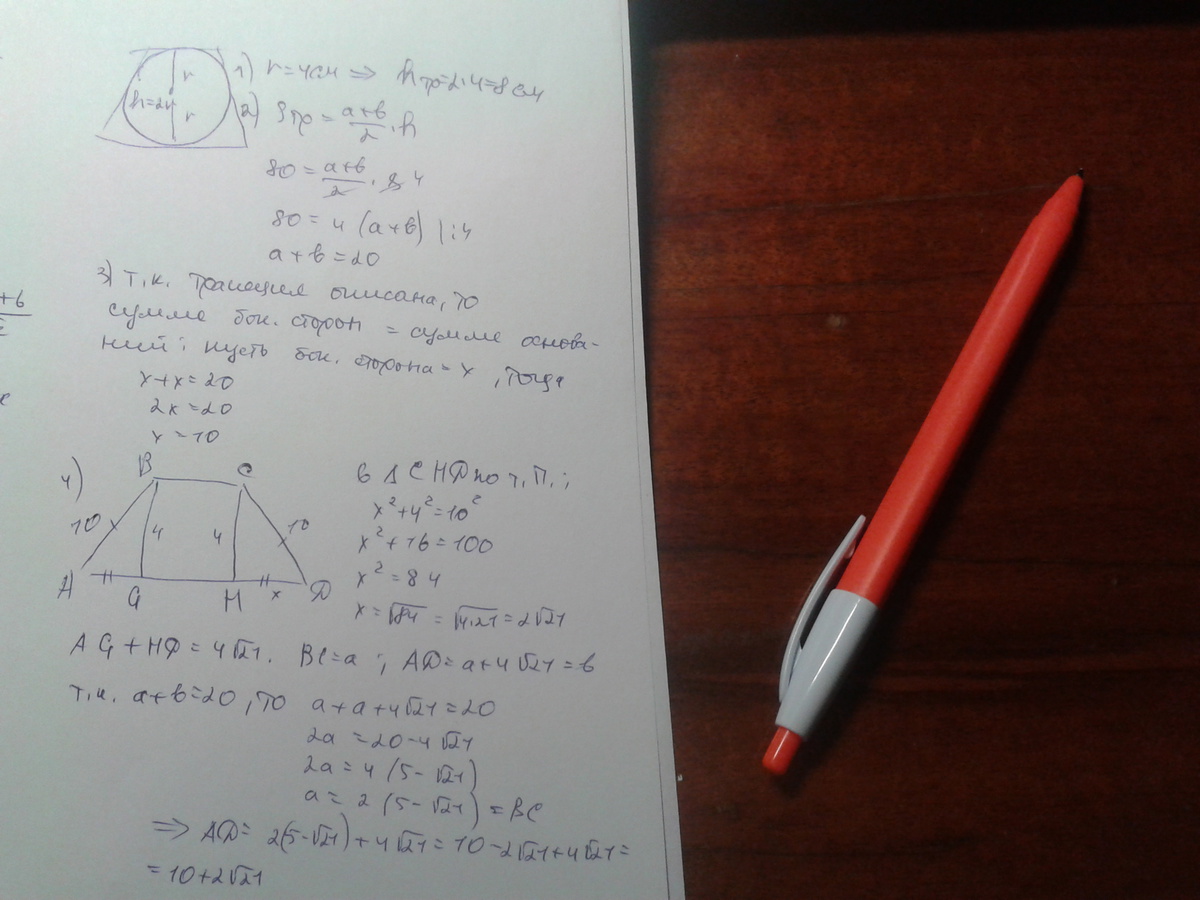 r
h=2r
r
1) r=4см ⇒ hтр=2·4=8см
2) Sтр = a+b/2 · h
80 = a+b/2 · 8 4
80 = 4 (a+b) |:4
a+b=20
3) т.к. трапеция описана, то
сумма бок. сторон = сумме основа-
ний; пусть бок. сторона = x, тогда
x+x=20
2x=20
x=10
4)
B C
10 4 4 10
A G H x D
в Δ CHD по т.П.:
x²+4²=10²
x²+16=100
x²=84
x=√84 = √4·21 = 2√21
AG+HD=4√21. BC=a; AD=a+4√21=b
т.к. a+b=20, то a+a+4√21=20
2a=20-4√21
2a=4(5-√21)
a=2(5-√21)=BC
⇒ AD= 2(5-√21)+4√21=10-2√21+4√21=
=10+2√21
+b